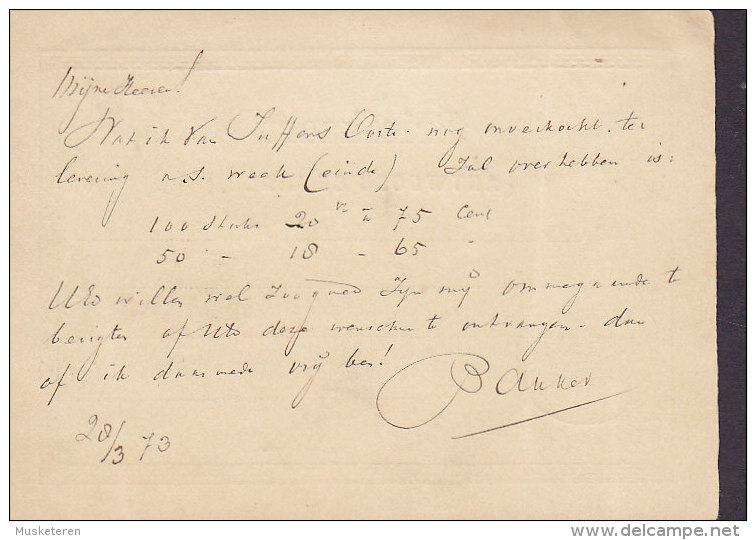 Mijne Heeren!
Wat ik van Juffers Ooste. nog onverkocht, ter
levering a.s. week (einde) zal overhebben is:
100 Stuks 20 vt à 75 Cent
50 - 18 - 65 -
UEd willen wel zoo goed zijn mij ommegaande te
berigten of UEd deze wenschen te ontvangen - dan
of ik daarmede vrij ben!
Bakker
28/3 73
Musketeren
delcampe.net